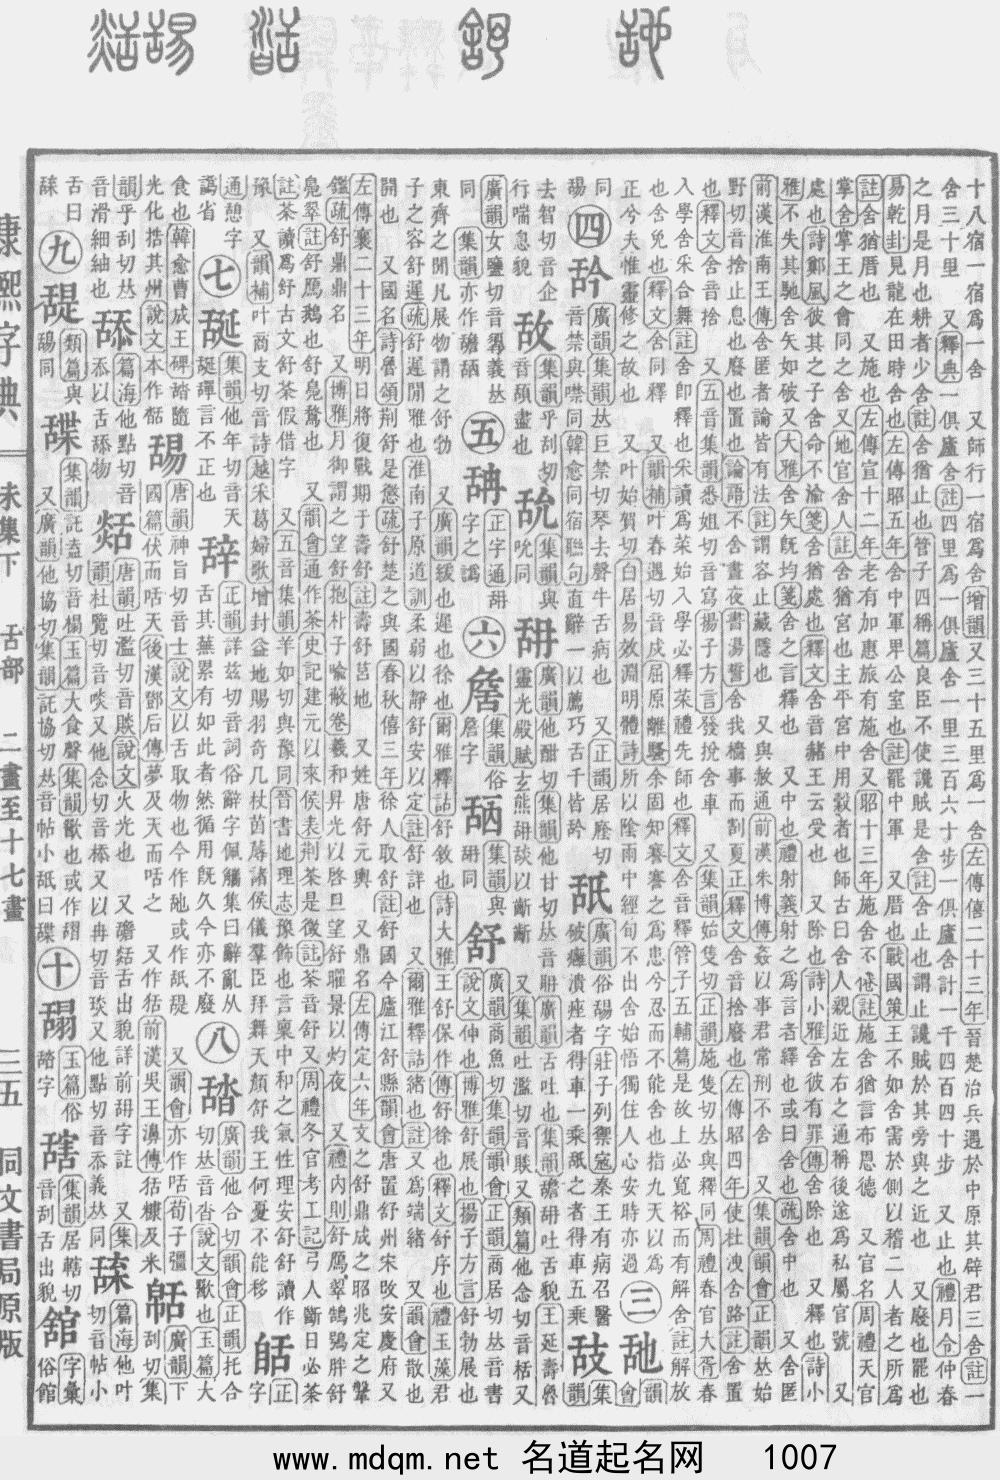 十八宿一宿爲一舍 又師行一宿爲舍增韻又三十五里爲一舍左傳僖二十三年晉楚治兵遇於中原其辟君三舍註一
舍三十里 又釋典一俱廬舍註四里爲一俱廬舍一里三百六十步一俱廬舍計一千四百四十步 又止也禮月令仲春
之月是月也耕者少舍註舍猶止也管子四稱篇良臣不使讒賊是舍註舍止也謂止讒賊於其旁與之近也 又廢也罷也
易乾卦見龍在田時舍也左傳昭五年舍中軍卑公室也註罷中軍 又厝也戰國策王不如舍需於側以稽二人者之所爲
註舍猶厝也 又施也左傳宣十二年老有加惠旅有施舍又昭十三年施舍不倦註施舍猶言布恩德 又官名周禮天官
掌舍掌王之會同之舍又地官舍人註舍猶宮也主平宮中用穀者也師古曰舍人親近左右之通稱後遂爲私屬官號 又
處也詩鄭風彼其之子舍命不渝箋舍猶處也釋文舍音赦王云受也 又除也詩小雅舍彼有罪傳舍除也 又釋也詩小
雅不失其馳舍矢如破又大雅舍矢旣均箋舍之言釋也 又中也禮射義射之爲言者繹也或曰舍也疏舍中也 又舍匿
前漢淮南王傳舍匿者論皆有法註謂容止藏隱也 又與赦通前漢朱博傳姦以事君常刑不舍 又集韻韻會正韻𠀤始
野切音捨止息也廢也置也論語不舍晝夜書湯誓舍我穡事而割夏正釋文舍音捨廢也左傳昭四年使杜洩舍路註舍置
也釋文舍音捨 又五音集韻悉姐切音寫揚子方言發挩舍車 又集韻始隻切正韻施隻切𠀤與釋同周禮春官大胥春
入學舍采合舞註舍卽釋也采讀爲菜始入學必釋菜禮先師也釋文舍音釋管子五輔篇是故上必寬裕而有解舍註解放
也舍免也釋文舍同釋 又韻補叶春遇切音戍屈原離騷余固知謇謇之爲患兮忍而不能舍也指九天以爲
正兮夫惟靈修之故也 又叶始賀切白居易效淵明體詩所以陰雨中經旬不出舍始悟獨住人心安時亦過 三 韻會
同 四 廣韻集韻𠀤巨禁切琴去聲牛舌病也 又正韻居廕切
音禁與噤同韓愈同宿聯句直辭一以薦巧舌千皆 舐 廣韻俗字莊子列禦寇秦王有病召醫
破癰潰痤者得車一乘舐之者得車五乘 集韻
去智切音企
行喘息貌 集韻乎刮切
音頢盡也 集韻與
吮同 廣韻他酣切集韻他甘切𠀤音
靈光殿賦玄熊𦧡舕以齗齗 又集韻吐濫切音 又類篇他念切音栝又
廣韻女鹽切音 義𠀤
同 集韻亦作 五 正字通
字之譌 六 集韻俗
詹字 集韻與
同 舒 廣韻商魚切集韻韻會正韻商居切𠀤音書
說文伸也博雅舒展也揚子方言舒勃展也
東齊之閒凡展物謂之舒勃 又廣韻緩也遲也徐也爾雅釋詁舒敘也詩大雅王舒保作傳舒徐也釋文舒序也禮玉藻君
子之容舒遲疏舒遲閒雅也淮南子原道訓柔弱以靜舒安以定註舒詳也 又爾雅釋詁緒也註又爲端緒 又韻會散也
開也 又國名詩魯頌荆舒是懲疏舒楚之與國春秋僖三年徐人取舒註舒國今廬江舒縣韻會唐置舒州宋攺安慶府又
左傳襄二十三年明日將復戰期于壽舒註壽舒莒地 又姓唐舒元輿 又鼎名左傳定六年文之舒鼎成之昭兆定之鞶
鑑疏舒鼎鼎名 又博雅月御謂之望舒抱朴子喩蔽卷羲和昇光以啓旦望舒曜景以灼夜 又禮內則舒鴈翠鵠鴞胖舒
鳧翠註舒鴈鵝也舒鳧鶩也 又韻會通作荼史記建元以來侯表荆荼是徵註荼音舒又周禮冬官考工記弓人斷目必荼
註荼讀爲舒古文舒荼假借字 又五音集韻羊如切與豫同晉書地理志豫飾也言稟中和之氣性理安舒舒讀作
豫 又韻補叶商支切音詩越宋葛婦歌增封益地賜羽奇几杖茵蓐諸侯儀羣臣拜舞天顏舒我王何憂不能移 正字
通憩字
譌省 七 集韻他年切音天
言不正也 辝 正韻詳兹切音詞俗辭字佩觿集曰辭亂从
舌其蕪累有如此者然循用旣久今亦不廢 八 廣韻他合切韻會正韻托合
切𠀤音沓說文歠也玉篇大
食也韓愈曹成王碑踏隨
光化捁其州說文本作 唐韻神旨切音士說文以舌取物也今作 或作舐
國篇伏而咶天後漢鄧后傳夢及天而咶之 又作狧前漢吳王濞傳狧穅及米 廣韻下
刮切集
韻乎刮切𠀤
音滑細紬也 舔 篇海他點切音
忝以舌舔物 唐韻吐濫切音賧說文火光也 又 舌出貌詳前 字註 又集
韻杜覽切音啖又他念切音㮇又以冉切音琰又他點切音忝義𠀤同 篇海他叶
切音帖小
舌曰
九 類篇與
同 集韻託盍切音榻玉篇大食聲集韻歠也或作
又廣韻他協切集韻託協切𠀤音帖小舐曰 十 玉篇俗
字 集韻居轄切
音刮舌出貌 舘 字彙
俗館
康熙字典 未集下 舌部 二畫至十七畫 三五 同文書局原版
www.mdqm.net 名道起名网 1007